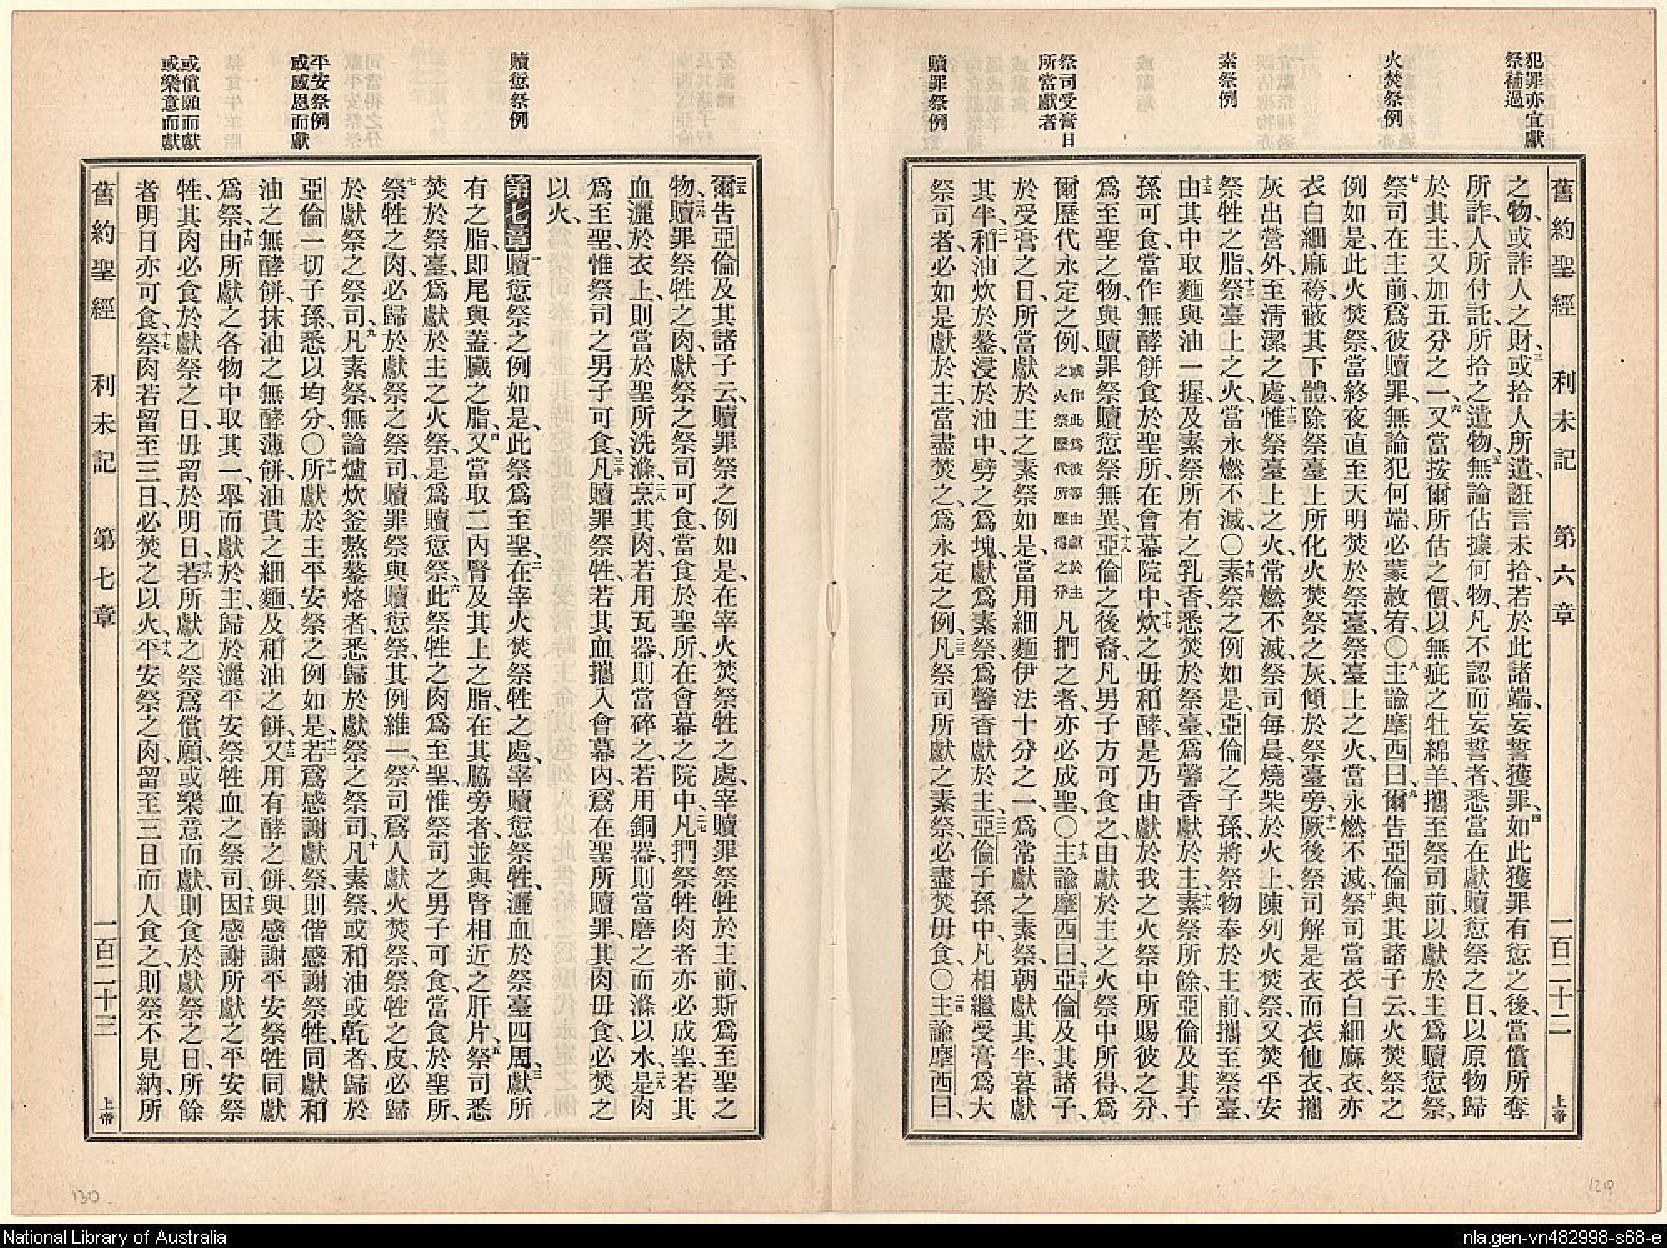 犯罪亦宜獻
祭補過
火焚祭例
素祭例
祭司受膏日
所當獻者
贖罪祭例
舊約聖經 利未記 第六章 一百二十二 上帝
之物、或詐人之財、三或拾人所遺、誑言未拾、若於此諸端、妄誓獲罪、四如此獲罪有愆之後、當償所奪
所詐、人所付託、所拾之遺物、五無論佔據何物、凡不認而妄誓者、悉當在獻贖愆祭之日、以原物歸
於其主、又加五分之一、六又當按爾所估之價、以無疵之牡綿羊、攜至祭司前、以獻於主、爲贖愆祭、
七祭司在主前、爲彼贖罪、無論犯何端、必蒙赦宥、〇八主諭摩西曰、九爾告亞倫與其諸子云、火焚祭之
例如是、此火焚祭、當終夜直至天明、焚於祭臺、祭臺上之火、當永燃不滅、十祭司當衣白細麻衣、亦
衣白細麻袴蔽其下體、除祭臺上所化火焚祭之灰、傾於祭臺旁、十一厥後祭司解是衣而衣他衣、攜
灰出營外、至清潔之處、十二惟祭臺上之火、常燃不滅、祭司每晨燒柴於火上、陳列火焚祭、又焚平安
祭牲之脂、十三祭臺上之火、當永燃不滅、〇十四素祭之例如是、亞倫之子孫、將祭物奉於主前、攜至祭臺、
十五由其中取麵與油一握、及素祭所有之乳香、悉焚於祭臺、爲馨香獻於主、十六素祭所餘、亞倫及其子
孫可食、當作無酵餅食於聖所、在會幕院中、十七炊之毋和酵、是乃由獻於我之火祭中所賜彼之分、
爲至聖之物、與贖罪祭贖愆祭無異、十八亞倫之後裔、凡男子方可食之、由獻於主之火祭中所得、爲
爾歷代永定之例、或作此爲彼等由獻於主之火祭歷代所應得之分凡捫之者、亦必成聖、〇十九主諭摩西曰、二十亞倫及其諸子、
於受膏之日、所當獻於主之素祭如是、當用細麵伊法十分之一、爲常獻之素祭、朝獻其半、暮獻
其半、二一和油炊於鏊、浸於油中、劈之爲塊、獻爲素祭、爲馨香獻於主、二二亞倫子孫中、凡相繼受膏爲大
祭司者、必如是獻於主、當盡焚之、爲永定之例、二三凡祭司所獻之素祭、必盡焚毋食、〇二四主諭摩西曰、
贖愆祭例
平安祭例
或感恩而獻
或償願而獻
或樂意而獻
二五爾告亞倫及其諸子云、贖罪祭之例如是、在宰火焚祭牲之處、宰贖罪祭牲於主前、斯爲至聖之
物、二六贖罪祭牲之肉、獻祭之祭司可食、當食於聖所、在會幕之院中、二七凡捫祭牲肉者、亦必成聖、若其
血灑於衣上、則當於聖所洗滌、二八烹其肉、若用瓦器、則當碎之、若用銅器、則當磨之而滌以水、二九是肉
爲至聖、惟祭司之男子可食、三十凡贖罪祭牲、若其血攜入會幕內、爲在聖所贖罪、其肉毋食、必焚之
以火、
第七章 一贖愆祭之例如是、此祭爲至聖、二在宰火焚祭牲之處、宰贖愆祭牲、灑血於祭臺四周、三獻所
有之脂、卽尾與蓋臟之脂、四又當取二內腎及其上之脂、在其脇旁者、並與腎相近之肝片、五祭司悉
焚於祭臺、爲獻於主之火祭、是爲贖愆祭、六此祭牲之肉爲至聖、惟祭司之男子可食、當食於聖所、
七祭牲之肉、必歸於獻祭之祭司、贖罪祭與贖愆祭、其例維一、八祭司爲人獻火焚祭、祭牲之皮、必歸
於獻祭之祭司、九凡素祭、無論爐炊釜熬鏊烙者、悉歸於獻祭之祭司、十凡素祭、或和油、或乾者、歸於
亞倫一切子孫、悉以均分、〇十一所獻於主平安祭之例如是、十二若爲感謝獻祭、則偕感謝祭牲、同獻和
油之無酵餅、抹油之無酵薄餅、油貫之細麵、及和油之餅、十三又用有酵之餅、與感謝平安祭牲同獻
爲祭、十四由所獻之各物中取其一、舉而獻於主、歸於灑平安祭牲血之祭司、十五因感謝所獻之平安祭
牲、其肉必食於獻祭之日、毋留於明日、十六若所獻之祭爲償願、或樂意而獻、則食於獻祭之日、所餘
者明日亦可食、十七祭肉若留至三日、必焚之以火、十八平安祭之肉、留至三日而人食之、則祭不見納、所
舊約聖經 利未記 第七章 一百二十三 上帝
130
129
National Library of Australia
nla.gen-vn482998-s68-e